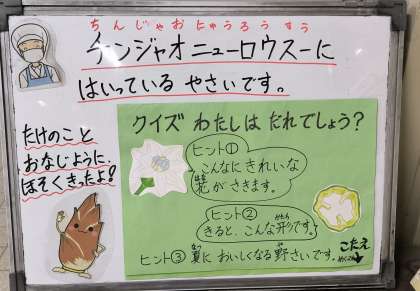 ちんじゃおにゅうろうすう
チンジャオニューロウスーに
はいっている やさいです。
たけのこと
おなじように、
ほそくきったよ!
クイズ わたしは だれでしょう?
ヒント①
こんなにきれいな
花がさきます。
ヒント②
かたち
きると、こんな形です。
ヒント③ 夏においしくなる野さいです。
こたえ